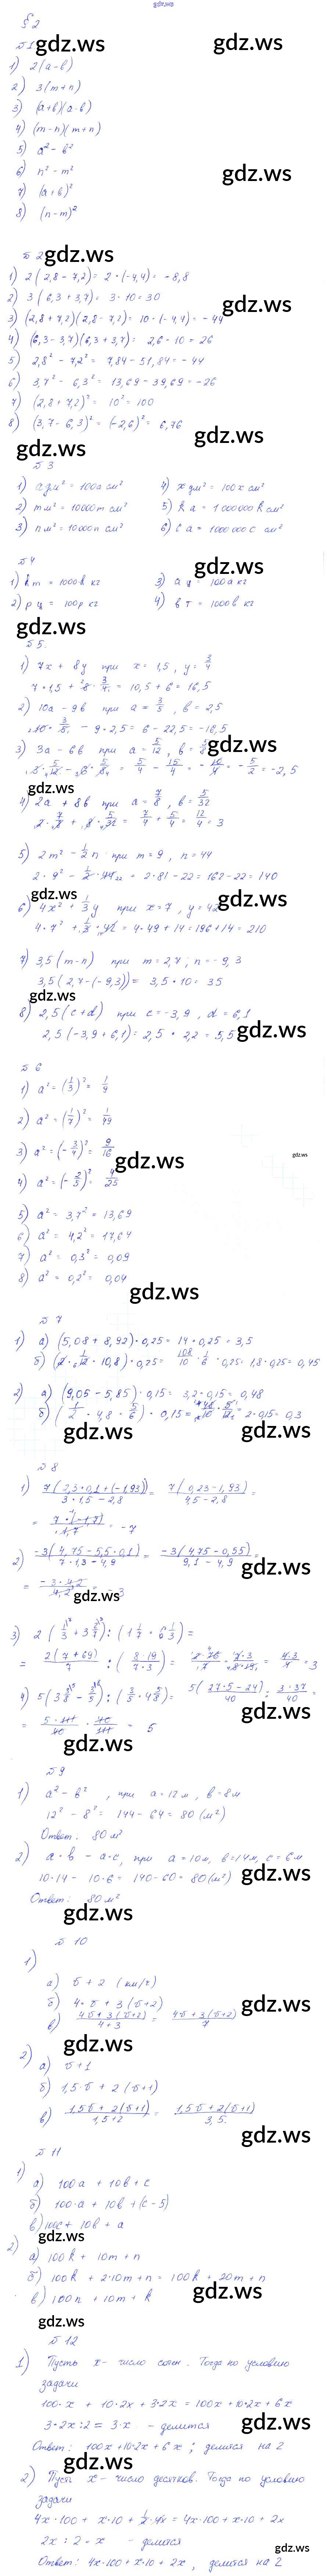 gdz.ws
§2
№1
1) 2(a-b)
2) 3(m+n)
3) (a+b)(a-b)
4) (m-n)(m+n)
5) a² - b²
6) n² - m²
7) (a+b)²
8) (n-m)²
№2
1) 2(2,8 - 7,2) = 2·(-4,4) = -8,8
2) 3(6,3 + 3,7) = 3·10 = 30
3) (2,8 + 7,2)(2,8 - 7,2) = 10·(-4,4) = -44
4) (6,3 - 3,7)(6,3 + 3,7) = 2,6·10 = 26
5) 2,8² - 7,2² = 7,84 - 51,84 = -44
6) 3,7² - 6,3² = 13,69 - 39,69 = -26
7) (2,8 + 7,2)² = 10² = 100
8) (3,7 - 6,3)² = (-2,6)² = 6,76
№3
1) a дм² = 100a см²
2) m м² = 10000m см²
3) n м² = 10000n см²
4) x дм² = 100x см²
5) k а = 1 000 000 k см²
6) c а = 1000 000 c см²
№4
1) k т = 1000k кг
2) p ц = 100p кг
3) a ц = 100a кг
4) b т = 1000b кг
№5.
1) 7x + 8y при x = 1,5, y = 3/4
7·1,5 + 8·3/4 = 10,5 + 6 = 16,5
2) 10a - 9b при a = 3/5, b = 2,5
10·3/5 - 9·2,5 = 6 - 22,5 = -16,5
3) 3a - 6b при a = 5/12, b = 5/8
3·5/12 - 6·5/8 = 5/4 - 15/4 = -10/4 = -5/2 = -2,5
4) 2a + 8b при a = 7/8, b = 5/32
2·7/8 + 8·5/32 = 7/4 + 5/4 = 12/4 = 3
5) 2m² - 1/2 n при m = 9, n = 44
2·9² - 1/2·44 = 2·81 - 22 = 162 - 22 = 140
6) 4x² + 1/3 y при x = 7, y = 42
4·7² + 1/3·42 = 4·49 + 14 = 196 + 14 = 210
7) 3,5(m-n) при m = 2,7; n = -9,3
3,5(2,7 - (-9,3)) = 3,5·10 = 35
8) 2,5(c+d) при c = -3,9, d = 6,1
2,5(-3,9 + 6,1) = 2,5·2,2 = 5,5
№6
1) a² = (1/3)² = 1/9
2) a² = (1/7)² = 1/49
3) a² = (-3/4)² = 9/16
4) a² = (-2/5)² = 4/25
5) a² = 3,7² = 13,69
6) a² = 4,2² = 17,64
7) a² = 0,3² = 0,09
8) a² = 0,2² = 0,04
№7
1) а) (5,08 + 8,92)·0,25 = 14·0,25 = 3,5
б) (2·1/12·10,8)·0,25 = 108/10·1/6·0,25 = 1,8·0,25 = 0,45
2) а) (9,05 - 5,85)·0,15 = 3,2·0,15 = 0,48
б) (1/2·4,8·5/6)·0,15 = 48/10·5/12 = 2·0,15 = 0,3
№8
1) 7(2,3·0,1 + (-1,93))/3·1,5 - 2,8 = 7(0,23 - 1,93)/4,5 - 2,8 =
= 7·(-1,7)/1,7 = -7
2) -3(4,75 - 5,5·0,1)/7·1,3 - 4,9 = -3(4,75 - 0,55)/9,1 - 4,9 =
= -3·4,2/4,2 = -3
3) 2(1/3 + 3 4/7) : (1 1/7·6 1/3) =
= 2(7+69)/7 : (8·19/7·3) = 2·76/7·7·3/8·19 = 7·3/7 = 3
4) 5(3 3/8 - 3/5) : (3/5·4 5/8) = 5(27·5 - 24)/40 : 3·37/40 =
= 5·111/40·40/111 = 5
№9
1) a² - b², при a = 12 м, b = 8 м
12² - 8² = 144 - 64 = 80 (м²)
Ответ: 80 м²
2) a·b - a·c, при a = 10 м, b = 14 м, c = 6 м
10·14 - 10·6 = 140 - 60 = 80 (м²)
Ответ: 80 м²
№10
1)
а) v + 2 (км/ч)
б) 4·v + 3(v+2)
в) 4v + 3(v+2)/4+3 = 4v + 3(v+2)/7
2)
а) v + 1
б) 1,5·v + 2(v+1)
в) 1,5v + 2(v+1)/1,5+2 = 1,5v + 2(v+1)/3,5.
№11
1)
а) 100a + 10b + c
б) 100·a + 10b + (c-5)
в) 100c + 10b + a
2)
а) 100k + 10m + n
б) 100k + 2·10m + n = 100k + 20m + n
в) 100n + 10m + k
№12
1) Пусть x - число сотен. Тогда по условию
задачи
100·x + 10·2x + 3·2x = 100x + 10·2x + 6x
3·2x : 2 = 3·x - делится
Ответ: 100x + 10·2x + 6x; делится на 2
2) Пусть x - число десятков. Тогда по условию
задачи
4x·100 + x·10 + 1/2·4x = 4x·100 + x·10 + 2x
2x : 2 = x - делится
Ответ: 4x·100 + x·10 + 2x, делится на 2